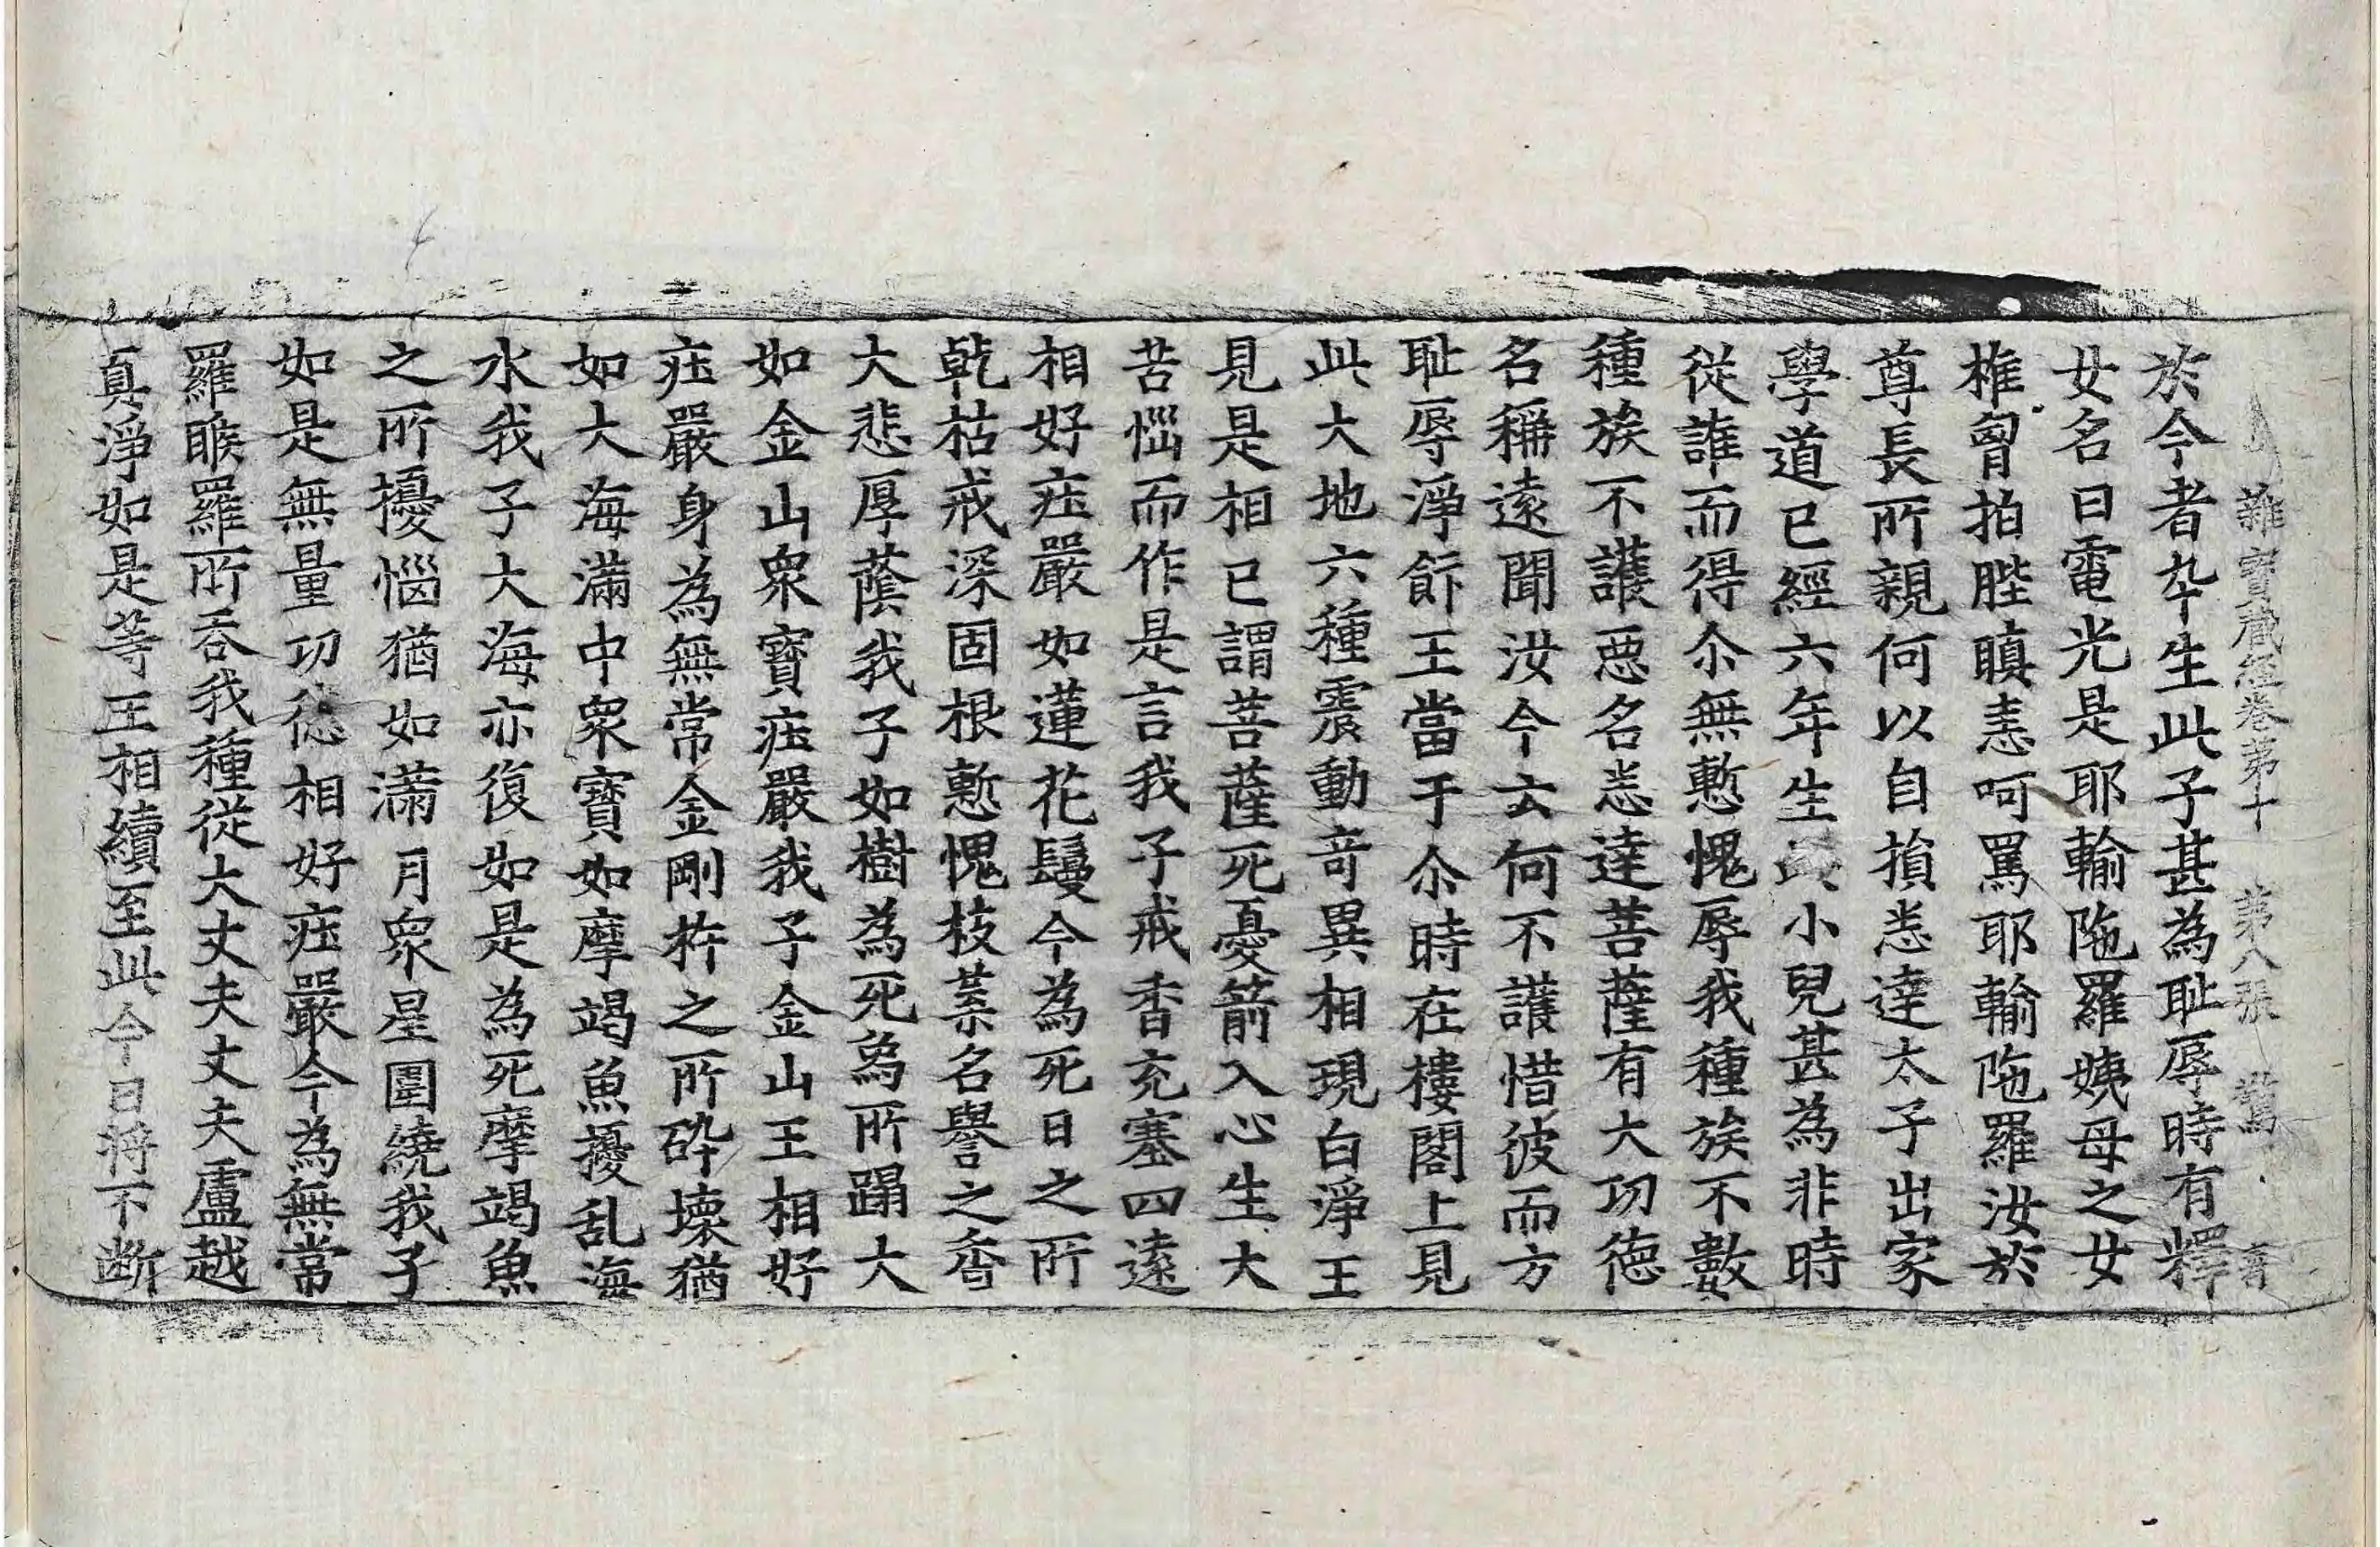 雜寶藏經卷第十　第八張
於今者卆生此子甚為耻辱時有釋
女名曰電光是耶輸陁羅姨母之女
椎曾拍髀瞋恚呵罵耶輸陁羅汝於
尊長所親何以自損悉達太子出家
學道已經六年生此小兒甚為非時
從誰而得尒無慙愧辱我種族不數
種族不護惡名悉達菩薩有大功德
名稱遠聞汝今云何不護惜彼而方
耻辱淨飰王當于尒時在樓閣上見
此大地六種震動奇異相現白淨王
見是相已謂菩薩死憂箭入心生大
苦惱而作是言我子戒香充塞四遠
相好莊嚴如蓮花鬘今為死日之所
乾枯戒深固根慙愧枝葉名譽之香
大悲厚蔭我子如樹為死爲所蹋大
如金山衆寶莊嚴我子金山王相好
莊嚴身為無常金剛杵之所碎壞猶
如大海滿中衆寶如摩竭魚擾乱海
水我子大海亦復如是為死摩竭魚
之所擾惱猶如滿月衆星圍繞我子
如是無量功德相好莊嚴今為無常
羅睺羅所吞我種從大丈夫丈夫盧越
真淨如是等王相續至此今日將不斷